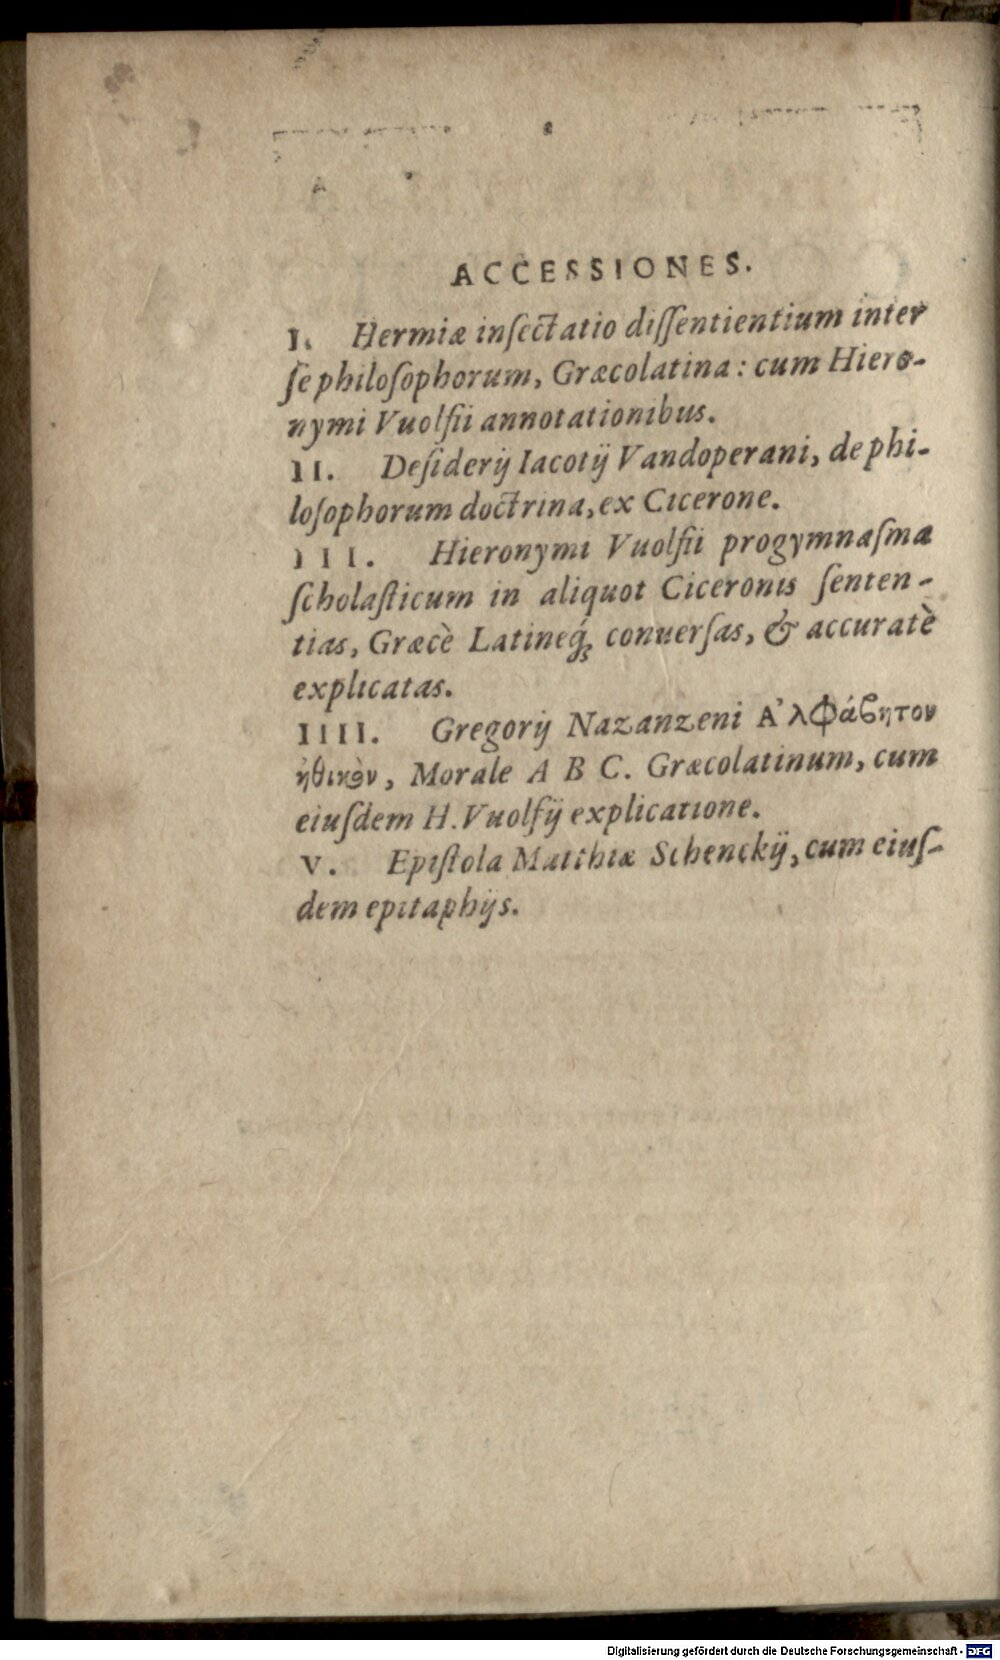 ACCESSIONES.
I. Hermiæ inſectatio diſſentientium inter
ſe philoſophorum, Græcolatina: cum Hiero-
nymi Vuolfii annotationibus.
II. Deſiderij Iacotij Vandoperani, de phi-
loſophorum doctrina, ex Cicerone.
III. Hieronymi Vuolfii progymnaſma
ſcholaſticum in aliquot Ciceronis ſenten-
tias, Græcè Latineq́; conuerſas, & accuratè
explicatas.
IIII. Gregorij Nazanzeni Α᾿λφάϐητον
ἠθικὸν, Morale A B C. Græcolatinum, cum
eiuſdem H. Vuolfij explicatione.
V. Epiſtola Matthiæ Schenckij, cum eiuſ-
dem epitaphijs.
Digitalisierung gefördert durch die Deutsche Forschungsgemeinschaft - DFG